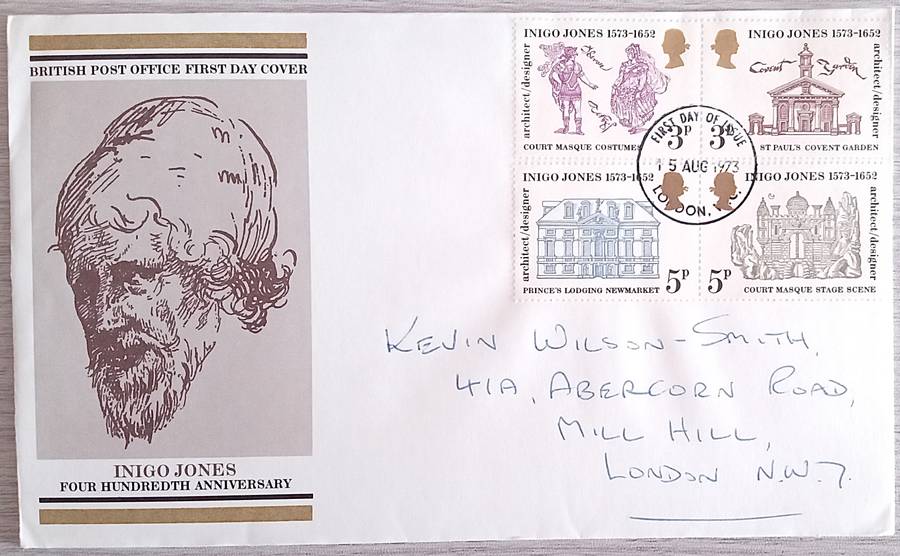 BRITISH POST OFFICE FIRST DAY COVER
INIGO JONES
FOUR HUNDREDTH ANNIVERSARY
INIGO JONES 1573-1652
architect/designer
COURT MASQUE COSTUMES
3P
INIGO JONES 1573-1652
architect/designer
Covent Garden
ST PAUL'S COVENT GARDEN
3P
INIGO JONES 1573-1652
architect/designer
PRINCE'S LODGING NEWMARKET
5P
INIGO JONES 1573-1652
architect/designer
5P
COURT MASQUE STAGE SCENE
FIRST DAY OF ISSUE
15 AUG 1973
LONDON,
KEVIN WILSON-SMITH,
41A, ABERCORN ROAD,
MILL HILL,
LONDON N.W.7.